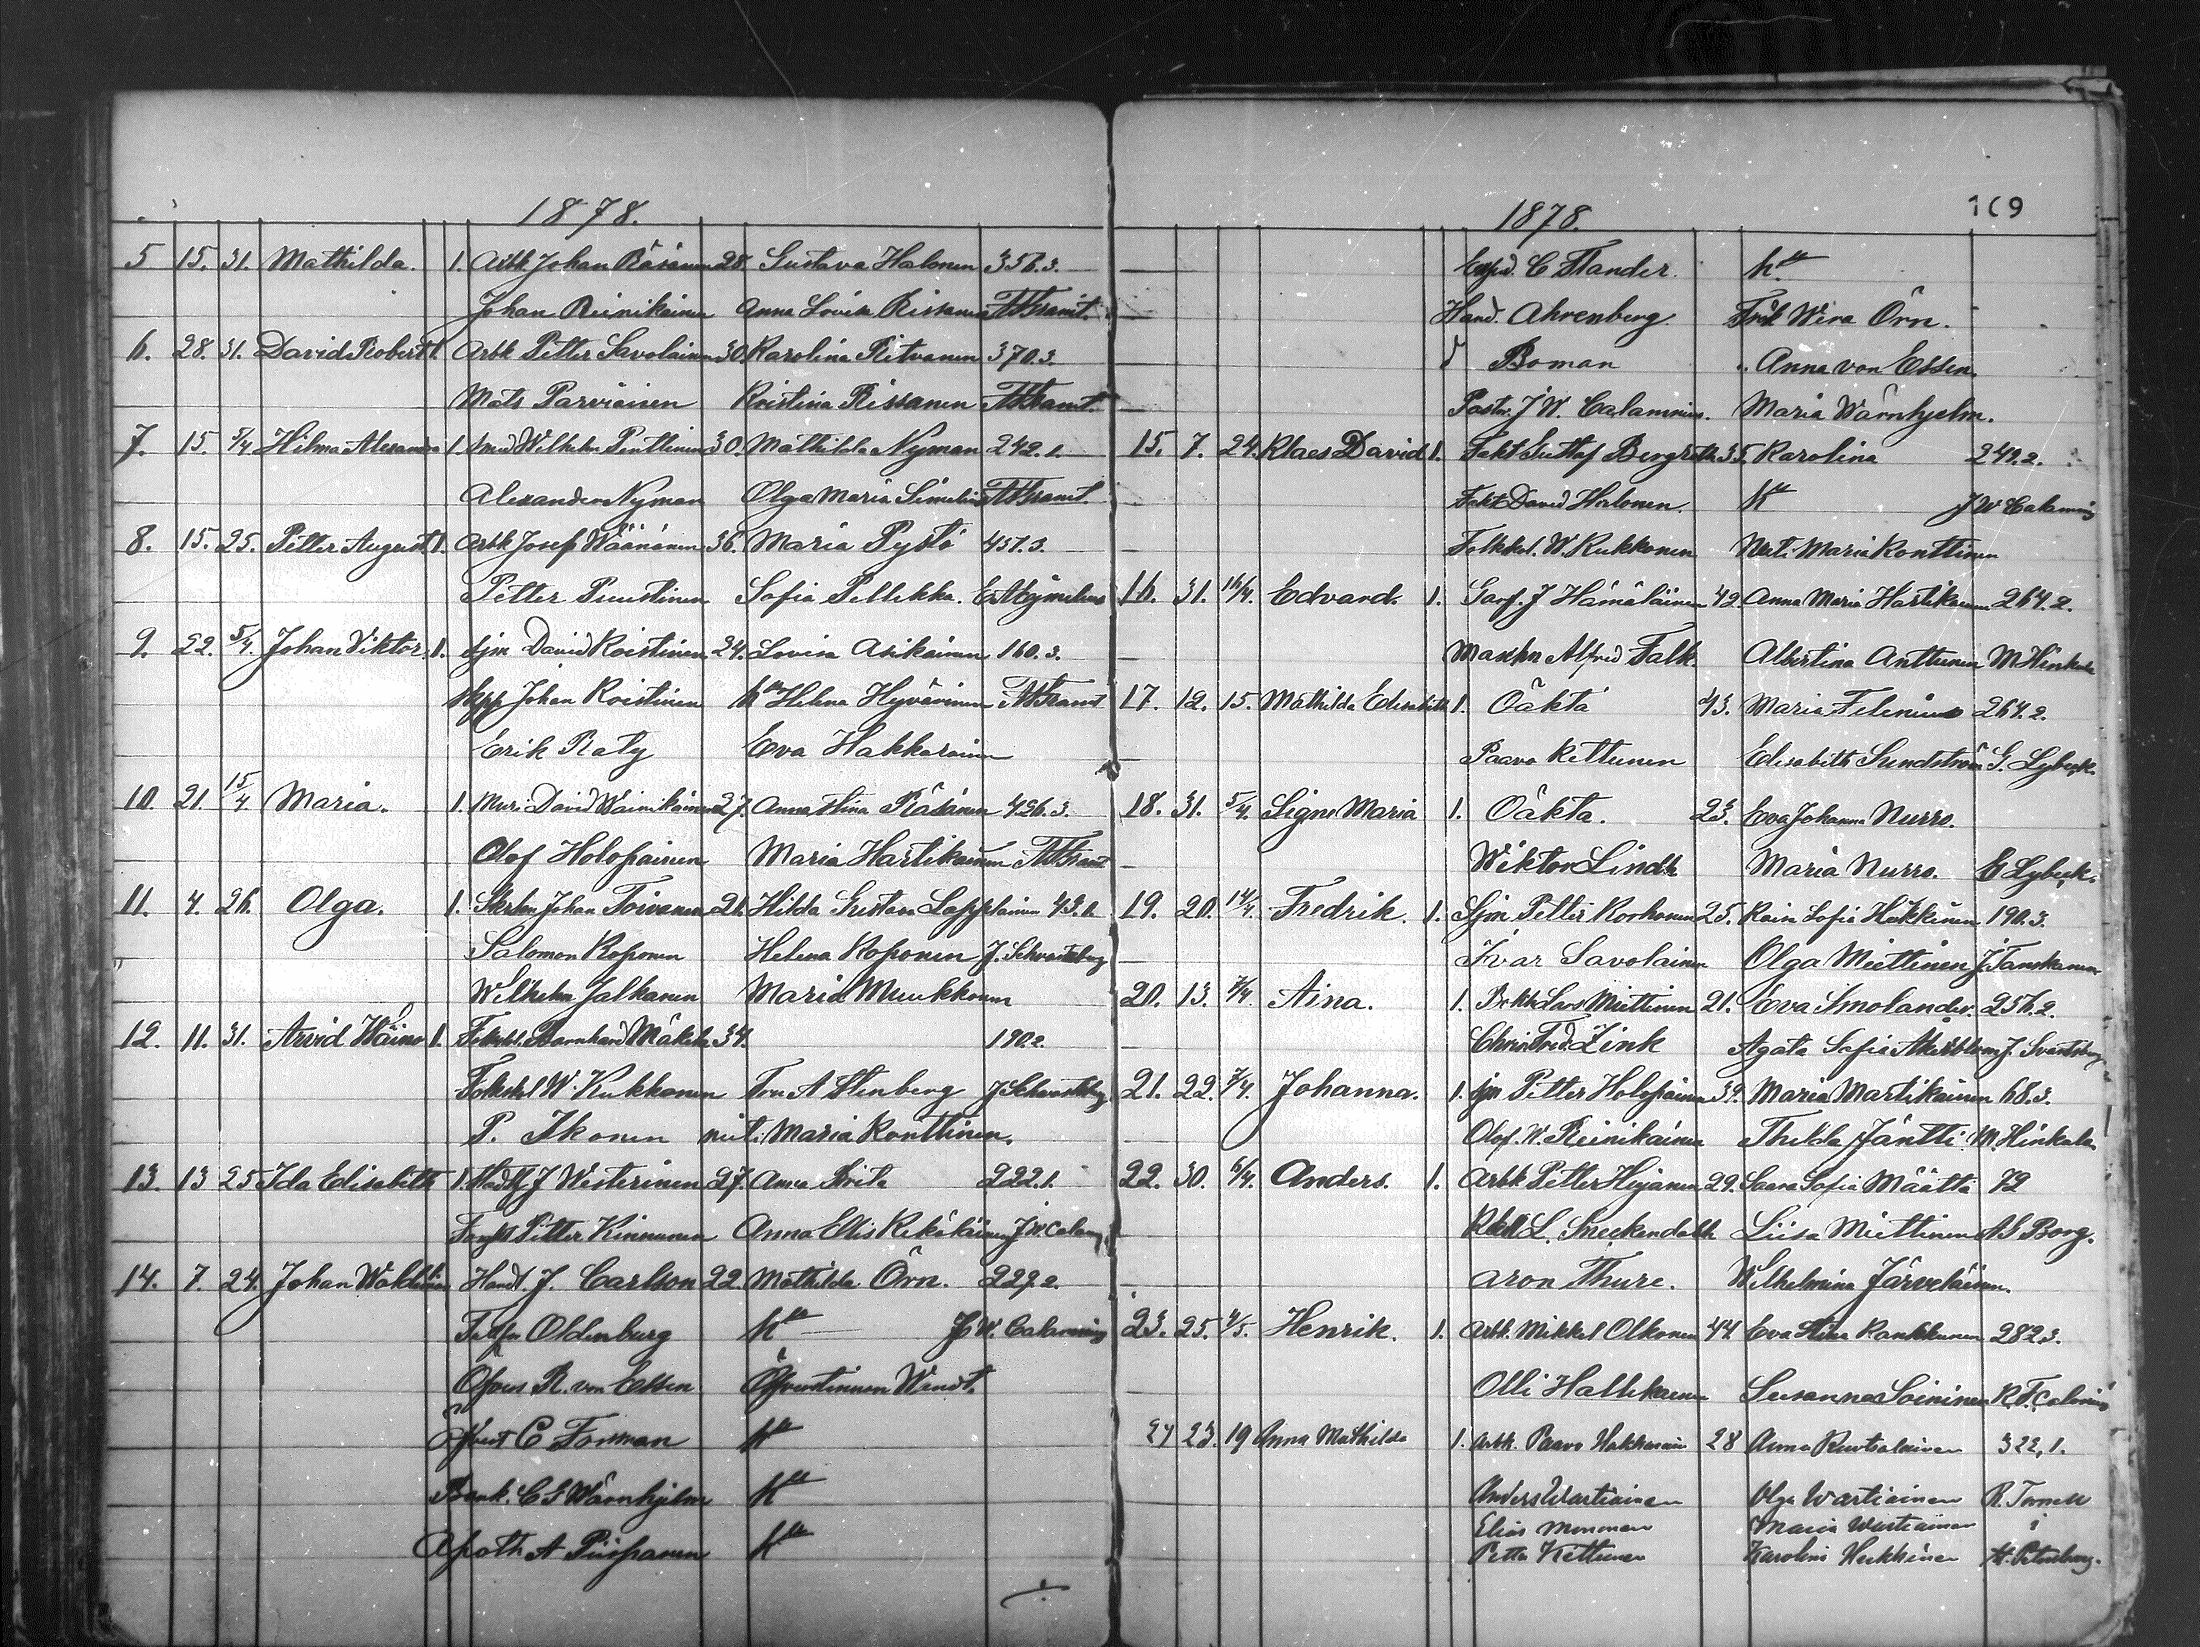 1878.
5 15. 31. Mathilda. 1. Arbk Johan Räsänen 28. Gustava Halonen 356.3.
Johan Reinikainen Anna Lovisa Rissanen
6. 28. 31. David Robert 1. Arbk Petter Savolainen 30. Karolina Ritvanen 370.3.
Mats Parviainen Kristina Rissanen
7. 15. 5/4 Hilma Alexandra 1. Smed Wilhelm Penttinen 30. Mathilda Nyman 242.1.
Alexander Nyman Olga Maria Simelius
8. 15. 25. Petter August 1. Arbk Josef Wäänänen 36. Maria Pystö 451.3.
Petter Puustinen Sofia Pellikka.
9. 22. 5/4. Johan Viktor. 1. Sjm David Koistinen 24. Lovisa Asikainen 160.3.
Skpp Johan Koistinen Helena Hyvärinen
Erik Räty Eva Hakkarainen
10. 21. 15/4. Maria. 1. Mur: David Wäinikäinen 27. Anna Stina Räsänen 426.3.
Olof Holopainen Maria Hartikainen
11. 4. 26. Olga. 1. Johan Toivanen 26. Hilda Gustava Lappalainen 43.1.
Salomon Koponen Helena Koponen J. Schvartzberg
Wilhelm Jalkanen Maria Muukkonen
12. 11. 31. Arvid Wäinö 1. Folkskl. Barnhard Mäkelä 34. 190.2
Folkskl W. Kukkonen Fru A Stenberg J Schvartzberg
P. Ikonen neit: Maria Konttinen.
13. 13 25 Ida Elisabeth 1. J Westerinen 27. Anna Brita 222.1.
Petter Kinnunen Anna Elis Rekikäinen J W. Calamnius
14. 7. 24. Johan Woldemar Handl. J. Carlson 22. Mathilda Örn. 227.2.
Oldenburg K J W. Calamnius
R. von Essen Öfverstinnan Wendt.
C Forsman K
Bank. C G Wärnhjelm K
Apoth A Piispanen K
1878. 169
Exped. C Stander. K
Hand. Ahrenberg. Frök Wera Örn.
d Boman " Anna von Essen.
Pastor. J W. Calamnius. Maria Wärnhjelm.
15. 7. 24. Klaes David 1. Fakt Gustaf Bergroth 35. Karolina 242.2.
Fakt David Halonen. K J W Calamnius
Folkskol. W. Kukkonen Neit: Maria Konttinen
16. 31. 16/4. Edvard. 1. Garf. J Hämäläinen 42. Anna Maria Hartikainen 264.2.
Alfred Falk. Albertina Anttunen M Hinkula
17. 12. 15. Mathilda Elisabeth 1. Oäkta 43. Maria Felenius 264.2.
Paavo Kettunen Elisabeth Sundström G. Lybeck.
18. 31. 5/4. Signe Maria 1. Oäkta. 23. Eva Johanna Nurro.
Wiktor Lindh Maria Nurro. G Lybeck.
19. 20. 14/4. Fredrik. 1. Sjm Petter Korhonen 25. Kaisa Sofia Hukkanen 190.3.
Ivar Savolainen Olga Miettinen J. Tanskanen
20. 13. 7/4. Aina. 1. Bokh. Lars Miettinen 21. Eva Smolander. 256.2.
Chris Fred. Zink Agata Sofia Åkerblom J. Svartzberg
21. 22. 7/4. Johanna. 1. Sjm Petter Holopainen 39. Maria Martikainen 68.3.
Olof. W. Reinikainen Thilda Jäntti M. Hinkula
22. 30. 6/4. Anders. 1. Arbk Petter Hujanen 29. Saara Sofia Määttä 72
L. Sneckendahl Liisa Miettinen A G Borg.
Aron Thure. Wilhelmina Järveläinen.
23. 25. 4/5. Henrik. 1. Arbk. Mikkel Olkonen 44. Eva Stina Pankkunen 282.3.
Olli Hallikainen Susanna Soininen K. F. Calamnius
24 23. 19 Anna Mathilda 1. Arbk. Paavo Hakkarainen 28 Anna Ruotsalainen 322,1.
Anders Wartiainen Olga Wartiainen R. Torneu
Elias Mononen Maria Wartiainen i
Petter Kettunen Karolina Heikkinen St. Petersburg.